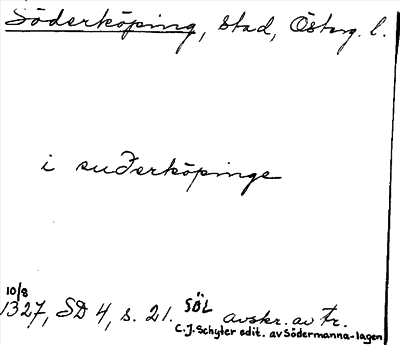 Söderköping, stad, Östg. l.
i suðerköpinge
10/8
1327, SD 4, s. 21. SÖL avskr. av Fr.
C.J. Schyter edit. av Södermanna-lagen